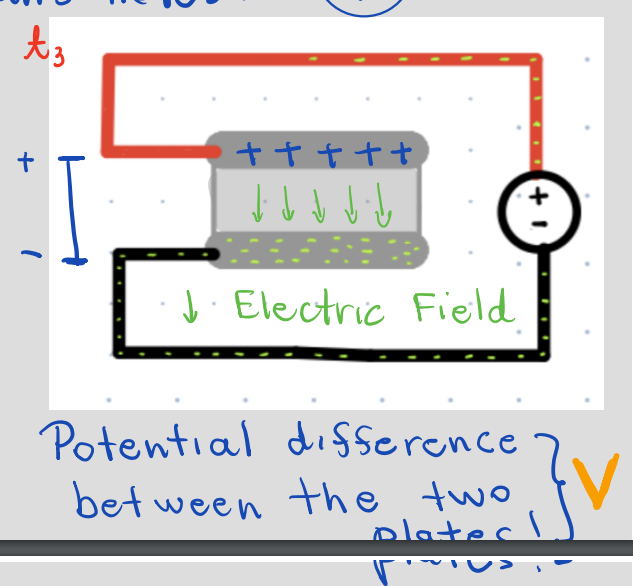 t₃
+ + + + +
+
-
+
-
↓ Electric Field
Potential difference
between the two
plates!
V